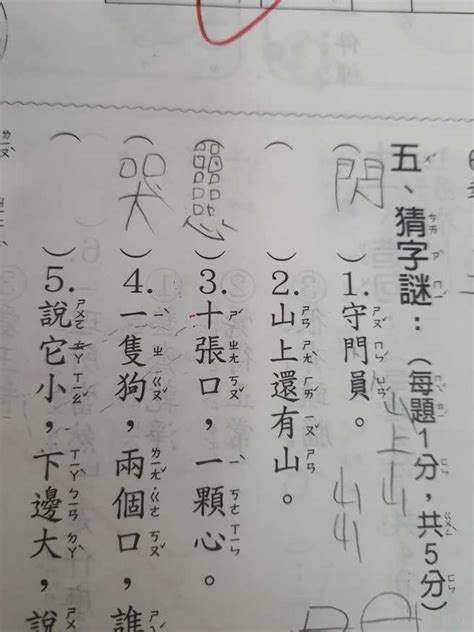 五、猜字謎：（每題1分，共5分）
山上山
（閃）1.守門員。
山
山
（ ）2.山上還有山。
（ ）3.十張口，一顆心。
（哭）4.一隻狗，兩個口，誰
（ ）5.說它小，下邊大，說